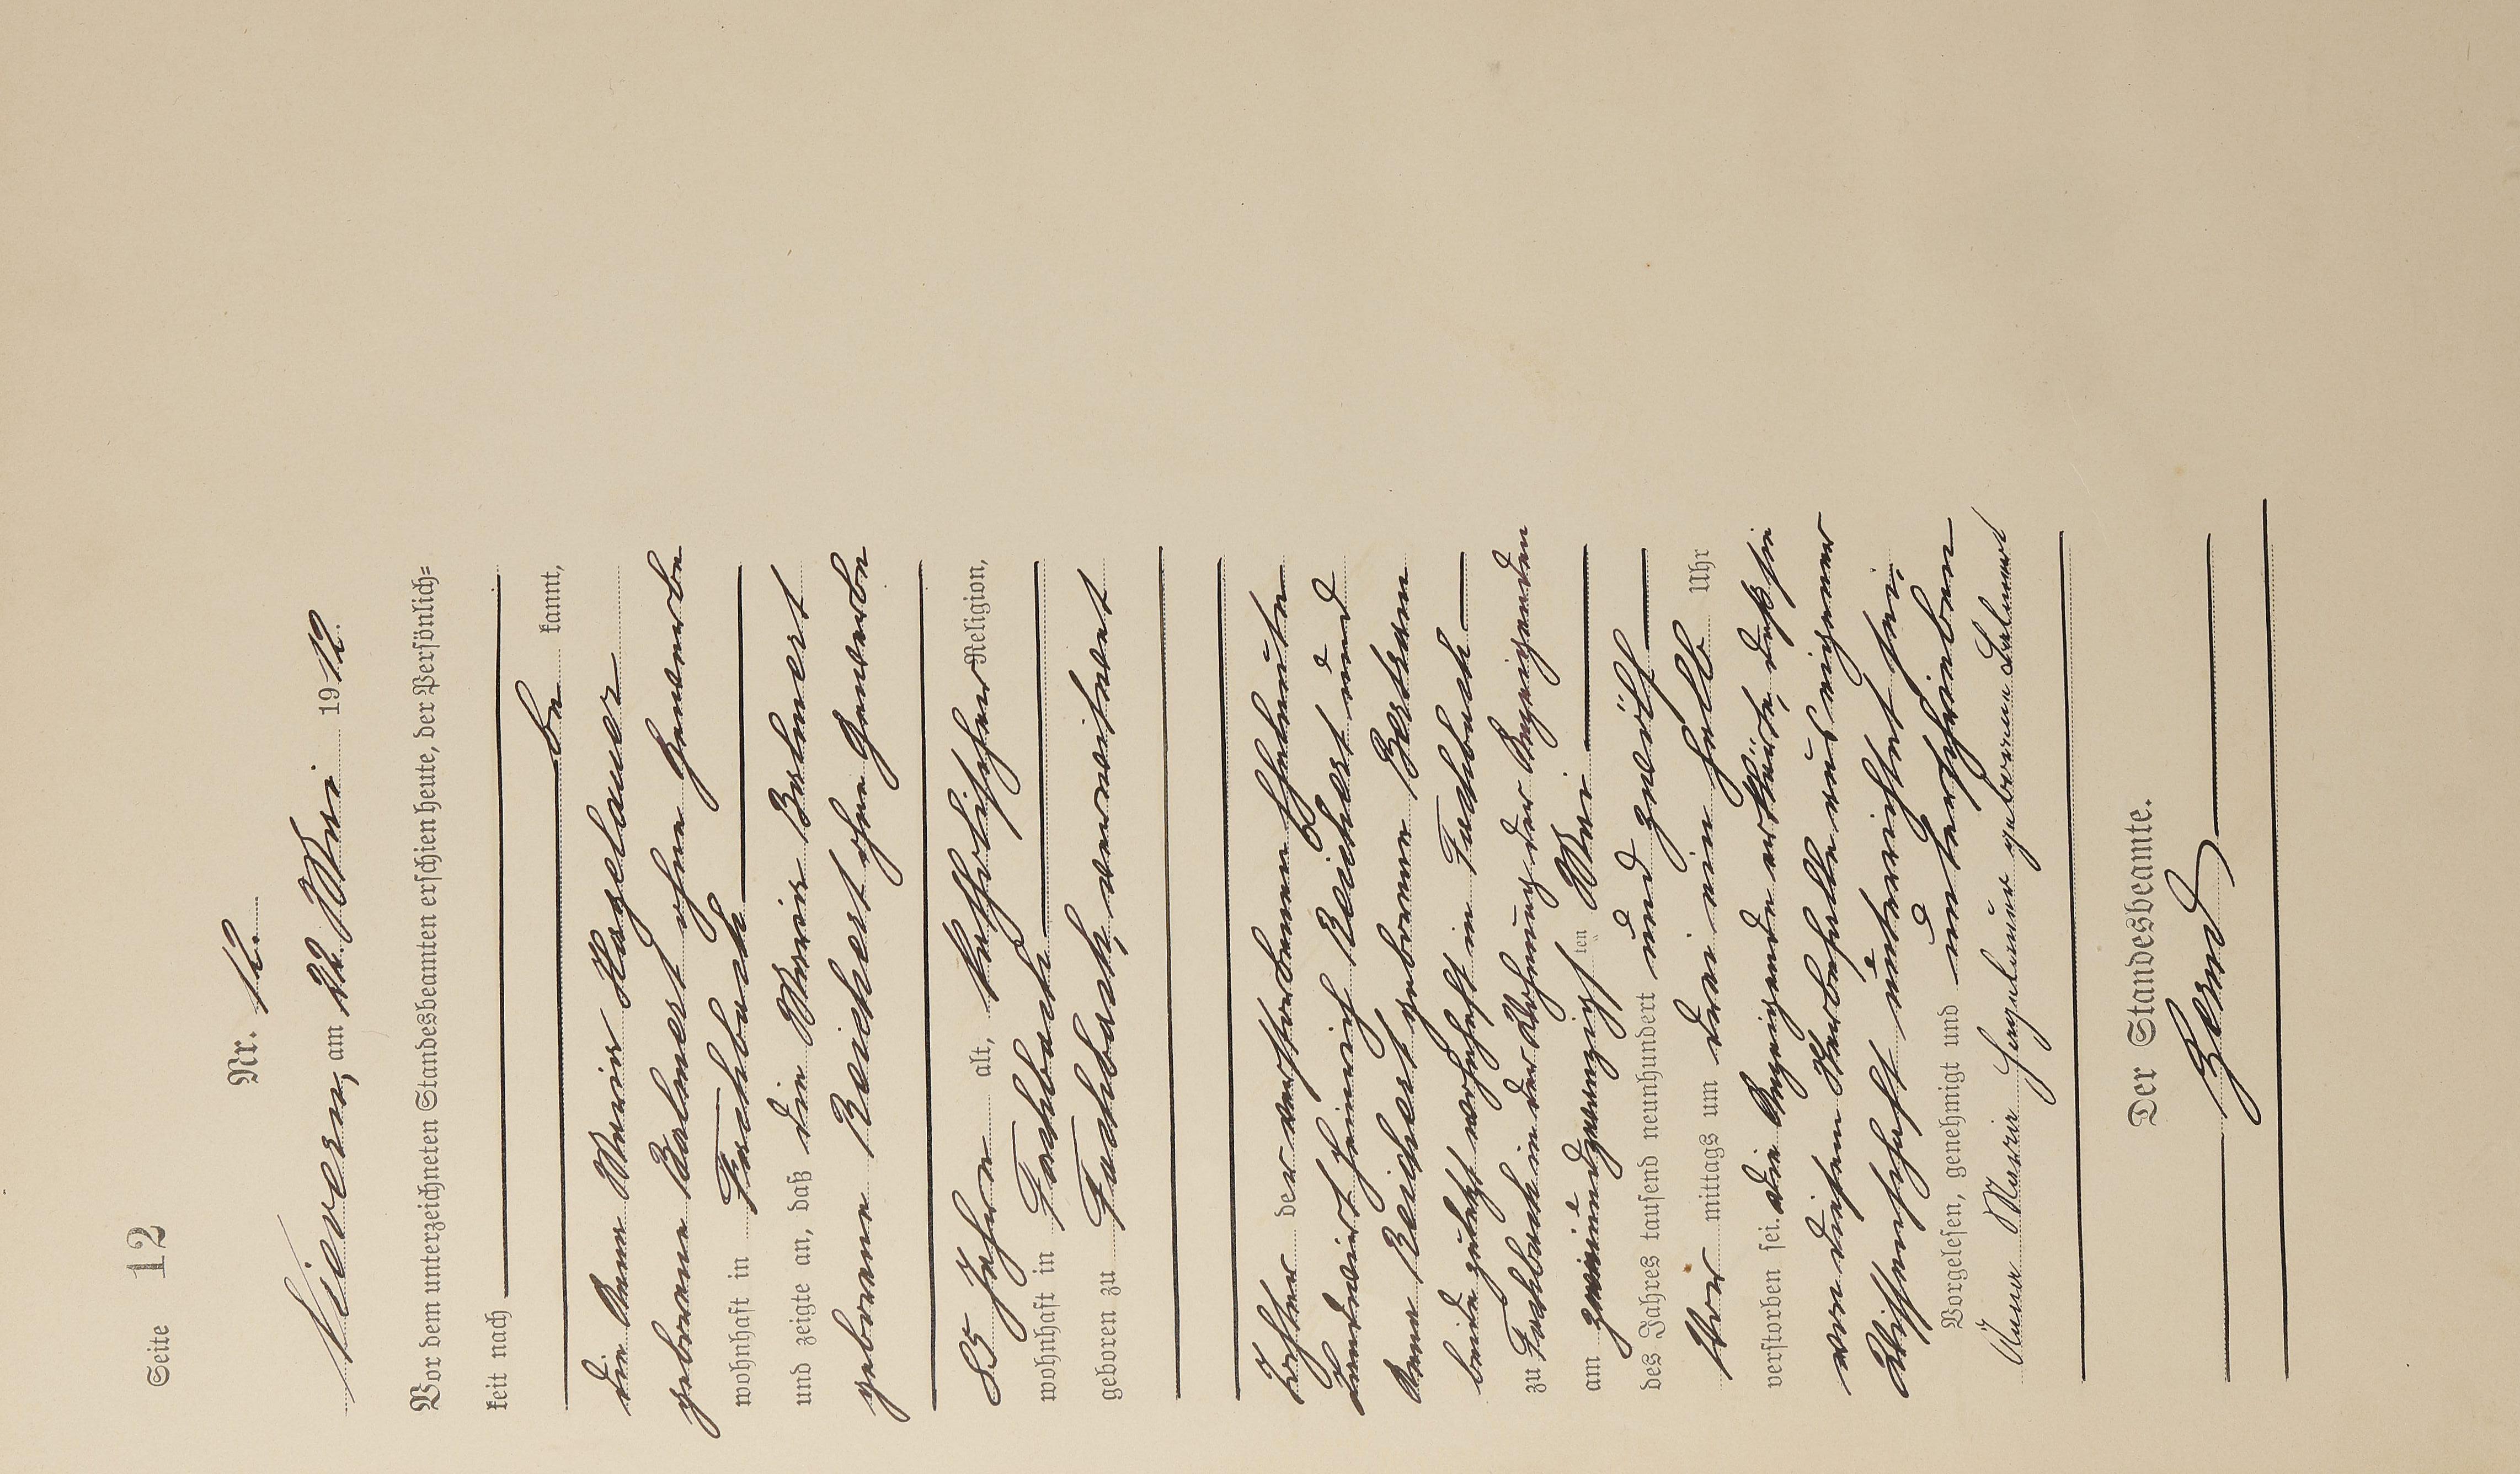 Seite 12
Nr. 12.
Kiewern, am 22. Mai 1912.
Vor dem unterzeichneten Standesbeamten erschien heute, der Persönlich-
keit nach
be kannt,
die Anna Maria
geborene ohne Gewerbe
wohnhaft in
und zeigte an, daß die Maria
geborene Reichert ohne Gewerbe
85 Jahre alt, katholischer Religion,
wohnhaft in
geboren zu verwitwet
Tochter der verstorbenen Eheleute
Landwirt Heinrich Reichert und
Anna Reichert geborene Bertram
beide zuletzt wohnhaft in
zu in der Wohnung der Anzeigenden
am zweiundzwanzigsten Mai
des Jahres tausend neunhundert und zwölf
Vor mittags um drei ein halb Uhr
verstorben sei. Die Anzeigende erklärte, daß sie
von diesem Sterbefalle aus eigener
Wissenschaft unterrichtet sei.
Vorgelesen, genehmigt und unterschrieben
Anna Maria geborene
Der Standesbeamte.